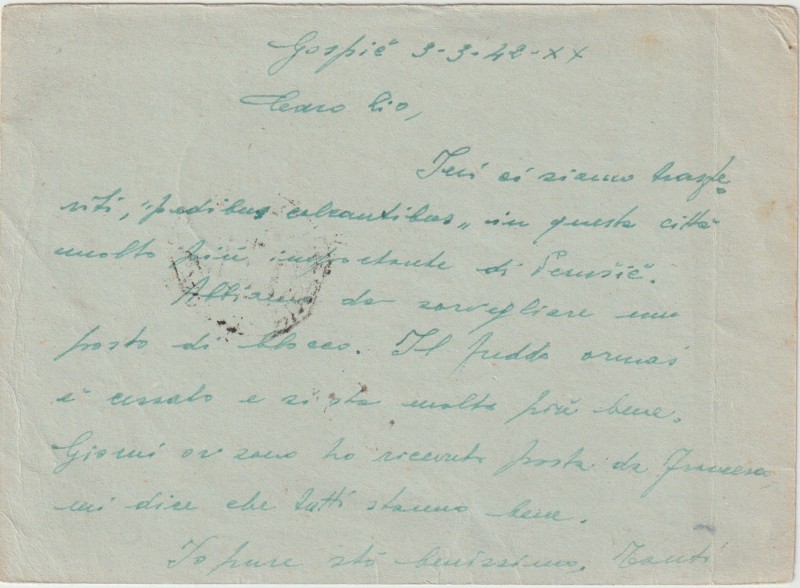 Gospič 3-3-42-XX
Caro Zio,
Ieri ci siamo trasfe-
riti, "pedibus calcantibus" in questa città
molto più importante di Perušič.
Abbiamo da sorvegliare un
posto di blocco. Il freddo ormai
è cessato e si sta molto più bene.
Giorni or sono ho ricevuto posta da Francesca
mi dice che tutti stanno bene.
Io pure stò benissimo. Tanti